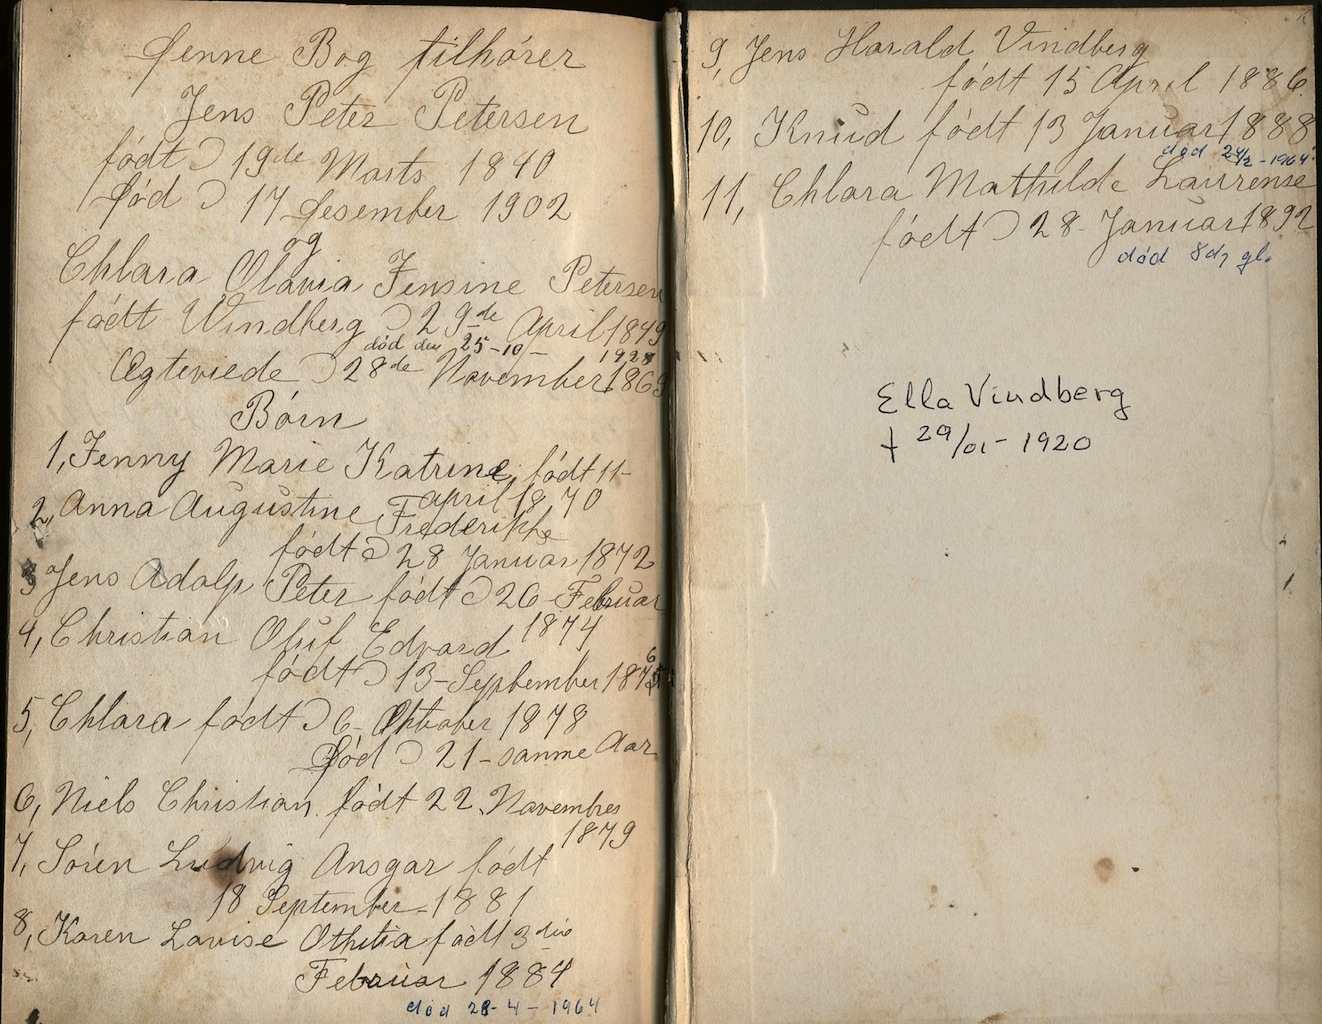 Denne Bog tilhórer
Jens Peter Petersen
födt D 19de Marts 1840
Död D 17 Desember 1902
og
Chlara Olavia Jensine Petersen
födt Windberg D 29de April 1849
död den 25-10-1927
Ægteviede D 28de November 1869
Börn
1, Jenny Marie Katrine, födt 11-
april 1870
2, Anna Augustine Frederikke
födt D 28 Januar 1872
3 Jens Adolp Peter födt D 26 Februar
1874
4, Christian Oluf Edvard
födt D 13-September 1876
5, Chlara födt D 6- Oktober 1878
Död D 21-samme Aar
6, Niels Christian födt 22 November
1879
7, Sören Ludvig Ansgar födt
18 September-1881
8, Karen Lovise Othilia födt 3die
Februar 1884
död 28-4-1964
9, Jens Harald Vindberg
födt 15 April 1886
10, Knud födt 13 Januar 1888
död 24/2-1964
11, Chlara Mathilde Laurense
födt D 28- Januar 1892
död 8d, gl.
Ella Vindberg
† 29/01-1920